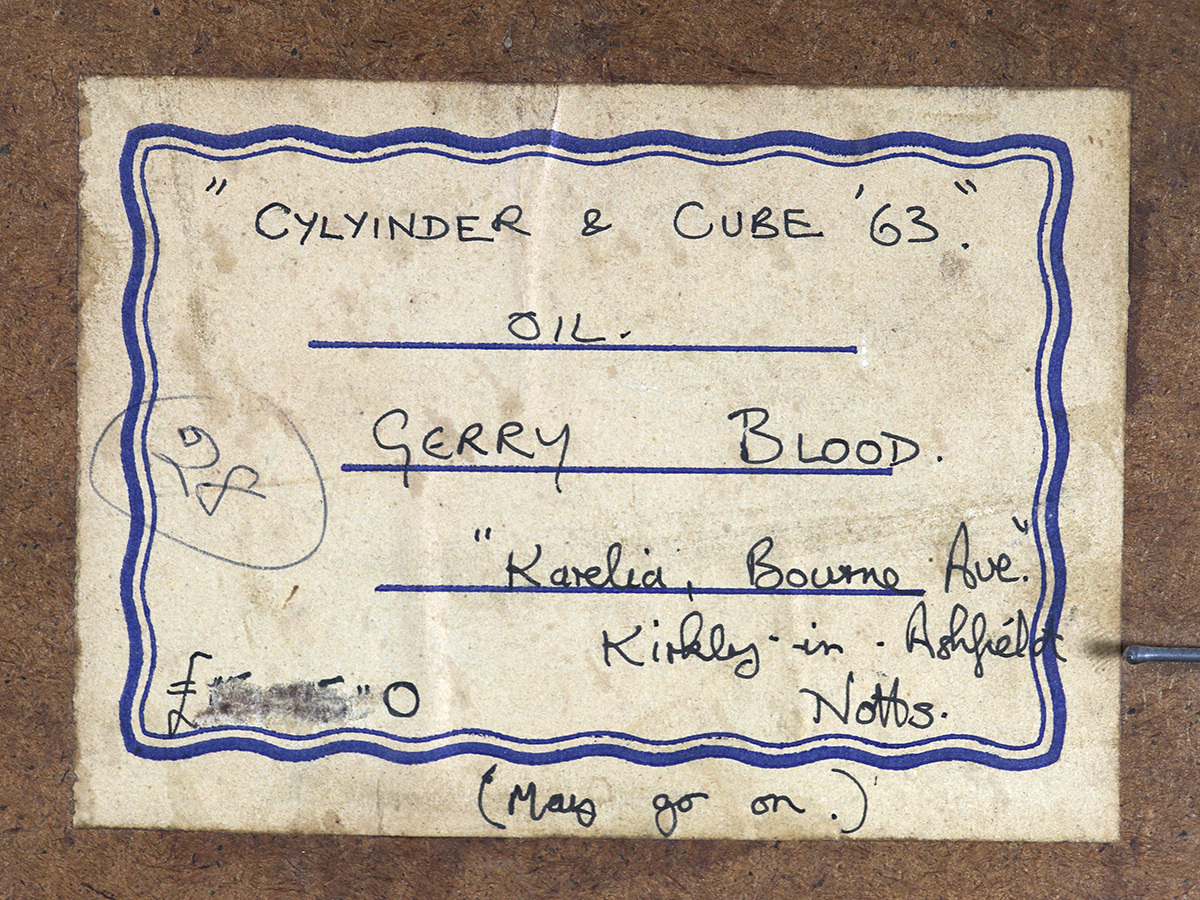 "CYLYINDER & CUBE '63."
OIL.
GERRY BLOOD.
28
"Karelia, Bourne Ave."
Kirkby-in-Ashfield
Notts.
£ 0
(May go on.)